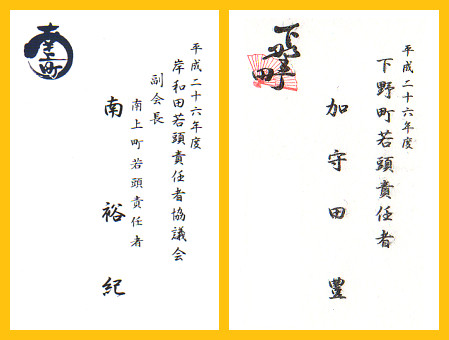 南上町
平成二十六年度
岸和田若頭責任者協議会
副会長
南上町若頭責任者
南裕紀
下野町
平成二十六年度
下野町若頭責任者
加守田豊